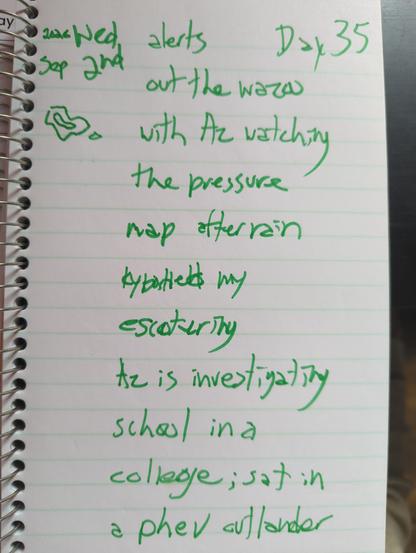 ay
2026 Wed alerts Day 35
Sep 2nd
out the wazoo
with Az watching
the pressure
map after rain
my
Az is investigating
school in a
college; sat in
a phev outlander